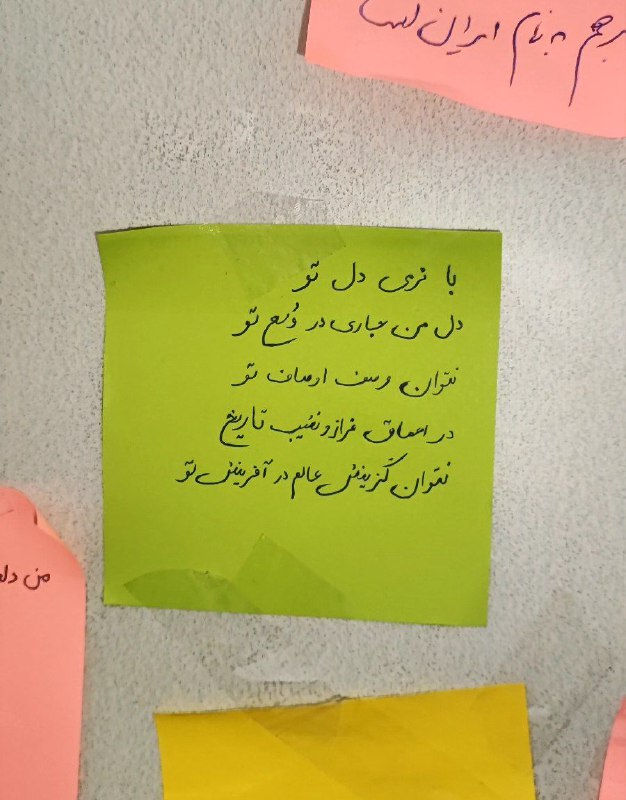 به نام ایران
با نری دل تو
دل من جاری در وُسع تو
نتوان وصف اوصاف تو
در اعماق فراز و نشیب تاریخ
نتوان گزینش عالم در آفرینش تو
من